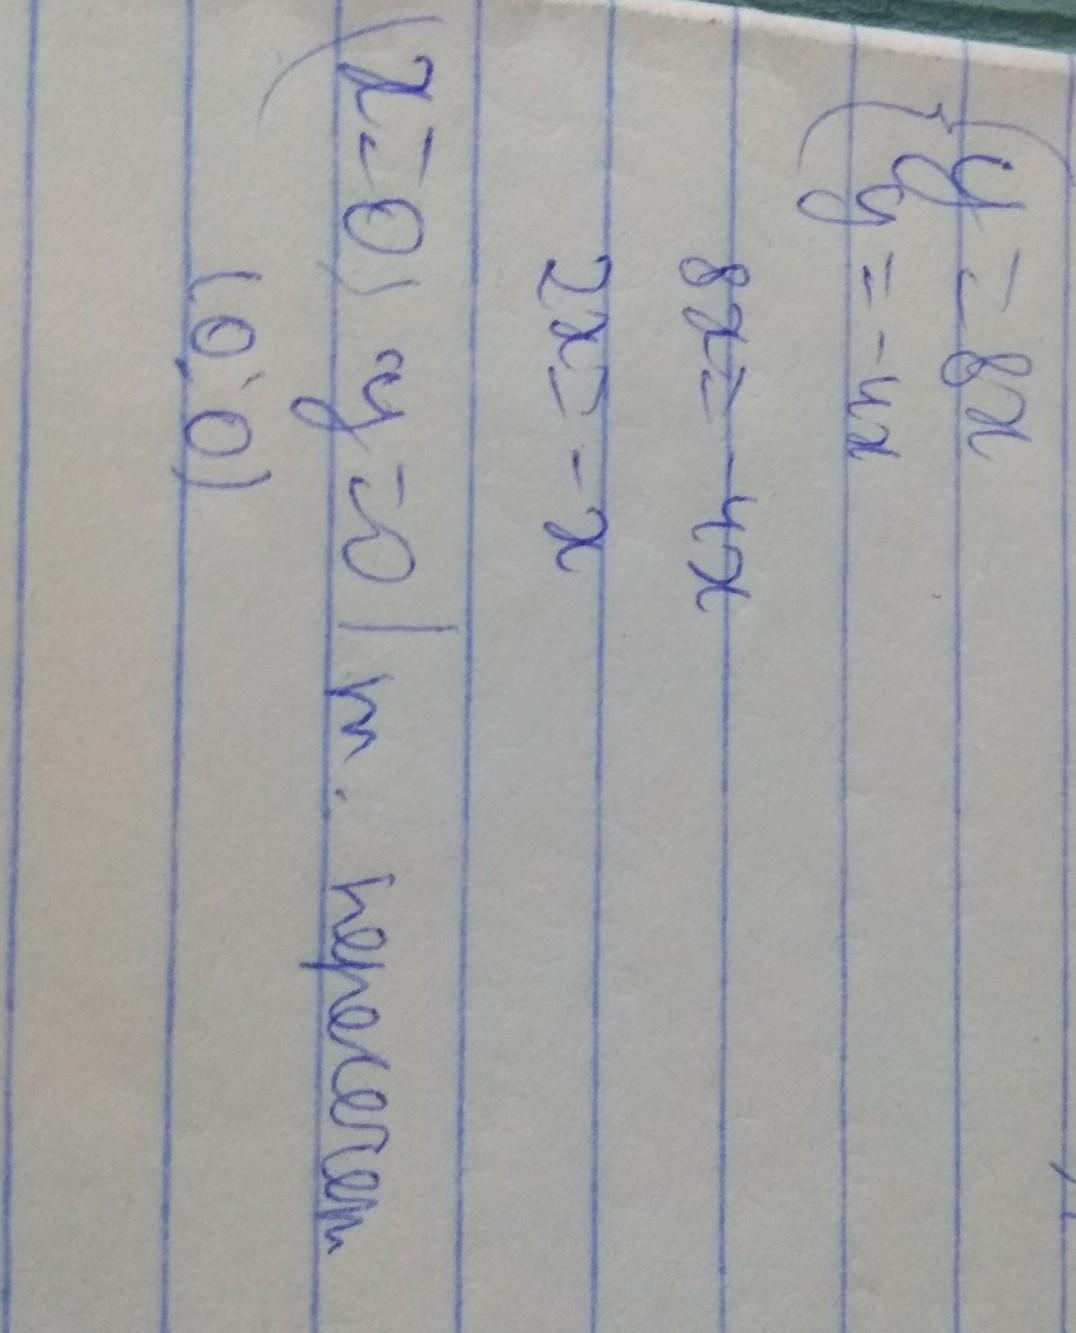 { y = 8x
y = -4x
8x = -4x
2x = -x
(x = 0) y = 0 | т. пересечен
(0; 0)